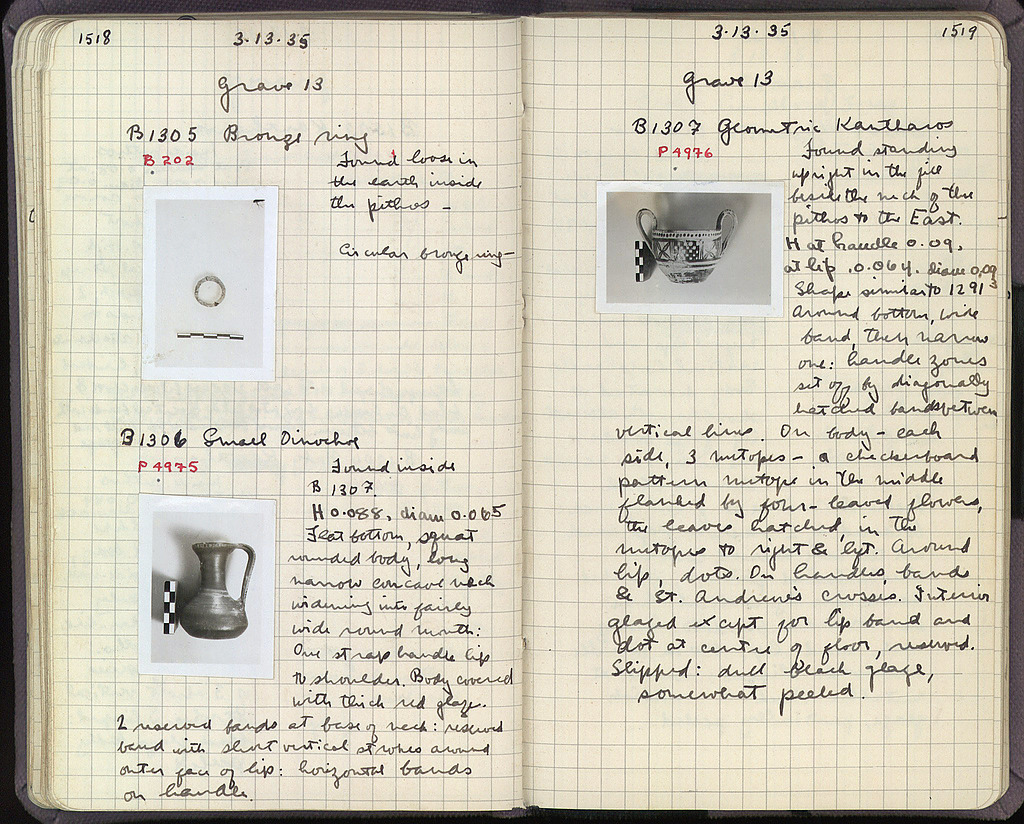 1518
3.13.35
Grave 13
B1305 Bronze ring
B 202
Found loose in
the earth inside
the pithos –
Circular bronze ring –
B1306 Small Oinochoe
P 4975
Found inside
B 1307.
H 0.088, diam 0.065
Flat bottom, squat
rounded body, long
narrow concave neck
widening into fairly
wide round mouth:
One strap handle lip
to shoulder. Body covered
with thick red glaze.
2 reserved bands at base of neck: reserved
band with short vertical strokes around
outer face of lip: horizontal bands
on handle.
3.13.35
1519
Grave 13
B1307 Geometric Kantharos
P 4976
Found standing
upright in the fill
beside the neck of the
pithos to the East.
H at handle 0.09,
at lip .0.064. diam 0,09
Shape similar to 1291
Around bottom, wide
band, then narrow
one: handle zones
set off by diagonally
hatched bands between
vertical lines. On body – each
side, 3 metopes – a checkerboard
pattern metope in the middle
flanked by four-leaved flowers,
the leaves hatched, in the
metopes to right & left. Around
lip, dots. On handles, bands
& St. Andrew's crosses. Interior
glazed except for lip band and
dot at centre of floor, reserved.
Slipped: dull black glaze,
somewhat peeled.